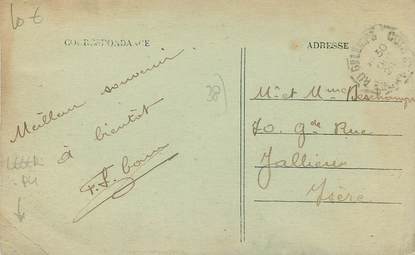 10 €
CORRESPONDANCE
ADRESSE
30
Meilleur souvenir
à bientôt
38
Mr et Mme Deschamps
70. Gde Rue
Jallieu
Isère